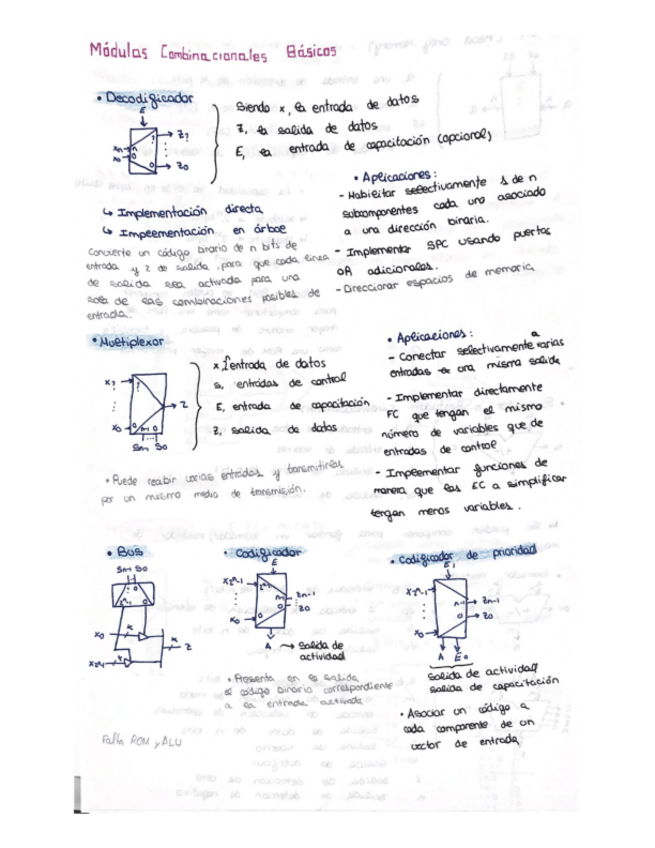 Módulos Combinacionales Básicos
• Decodificador
E
xn
x0
n
0
?
0
Z?
Z0
Siendo x, la entrada de datos
Z, la salida de datos
E, la entrada de capacitación (opcional)
↳ Implementación directa
↳ Implementación en árbol
Convierte un código binario de n bits de
entrada y 2 de salida, para que cada línea
de salida sea activada para una
sola de las combinaciones posibles de
entrada.
• Aplicaciones:
- Habilitar selectivamente 1 de n
subcomponentes cada uno asociado
a una dirección binaria.
- Implementar SPC usando puertas
OR adicionales.
- Direccionar espacios de memoria
• Multiplexor
x?
x0
?
0
n-1 0
Sn-1 S0
Z
x, entrada de datos
s, entradas de control
E, entrada de capacitación
Z, salida de datos
• Puede recibir varias entradas y transmitirlas
por un mismo medio de transmisión.
• Aplicaciones:
- Conectar selectivamente varias
entradas a una misma salida
- Implementar directamente
FC que tengan el mismo
número de variables que de
entradas de control
- Implementar funciones de
manera que las EC a simplificar
tengan menos variables.
• Bus
Sn-1 S0
x0
k
k
Z
• Codificador
E
x2ⁿ-1
x0
2ⁿ-1
0
n-1
0
Zn-1
Z0
A → Salida de
actividad
• Presenta en la salida
el código binario correspondiente
a la entrada activada
• Codificador de prioridad
E
x2ⁿ-1
x0
n-1
0
Zn-1
Z0
A E0
Salida de actividad
Salida de capacitación
• Asociar un código a
cada componente de un
vector de entrada
Falta ROM y ALU